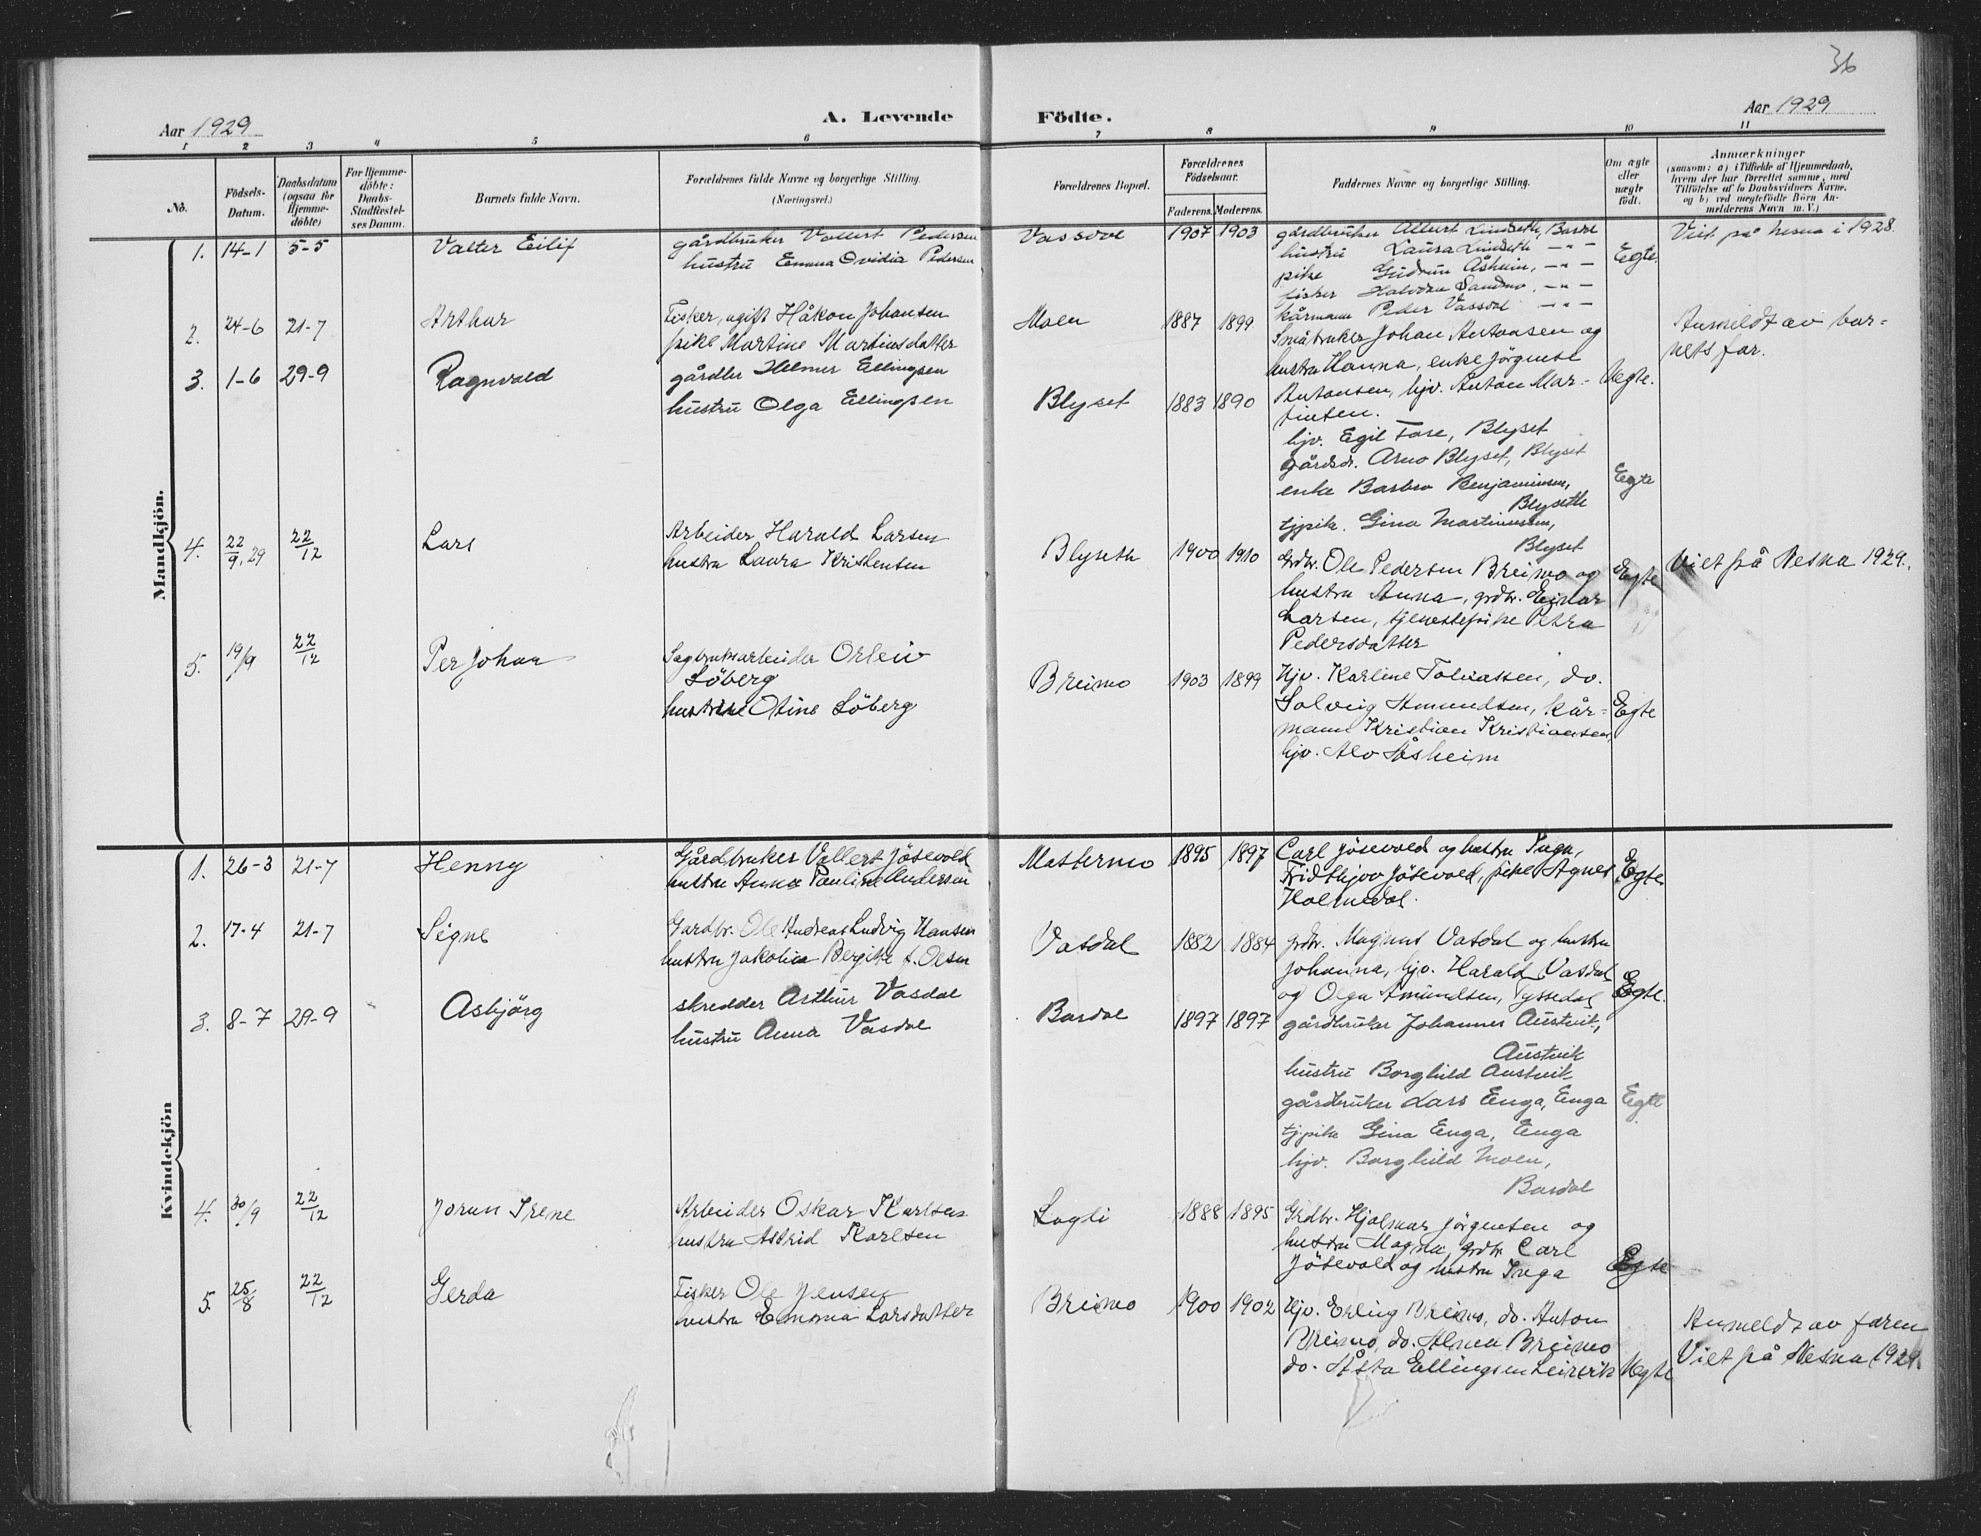 36
Aar 1929
A. Levende Födte.
Aar 1929
1 2 3 4 5 6 7 8 9 10 11
No.
Födsels-Datum.
Daabsdatum (ogsaa for Hjemme-döbte)
For Hjemme-döbte: Daabs-Stadfæstel-ses Datum.
Barnets fulde Navn.
Forældrenes fulde Navne og borgerlige Stilling.
(Næringsvei.)
Forældrenes Bopæl.
Forældrenes Födselsaar.
Faderens. Moderens.
Faddernes Navne og borgerlige Stilling.
Om ægte eller uægte födt.
Anmærkninger
(saasom: a) i Tilfælde af Hjemmedaab,
hvem der har forrettet samme, med
Tilföielse af to Daabsvidners Navne.
og b) ved uægtefödte Börn An-
melderens Navn m. V.)
Mandkjön.
1. 14-1 5-5 Valter Eilif
gårdbruker Vallert Pedersen
hustru Emma Ovidia Pedersen
Vassdal 1907 1903
gårdbruker Albert Lindseth,
hustru Laura Lindseth -"-
pike Gudrun Åsheim, -"-
fisker Halvdan Sandmo, -"-
kårmann Peder Vassdal -"-
Egte.
Viet på Nesna i 1928.
2. 24-6 21-7 Arthur
Fisker, ugift Håkon Johansen
pike Martine Martinsdatter
Moen 1887 1899
Småbruker Johan Antonsen og
hustru Hanna, enke Jörgine
Antonsen, hjv. Anton Mar-
tinsen.
Uegte.
Anmeldt av bar-
nets far.
3. 1-6 29-9 Ragnvald
gårdbr Helmer Ellingsen
hustru Olga Ellingsen
Blyset 1883 1890
hjv. Egil Fore, Blyset
gårdsdr. Arno Blyset, Blyset
enke Barbro Benjaminsen,
Blyseth
tjpike. Gina Martinussen,
Blyset
Egte
4. 22/9.29 22/12 Lars
Arbeider Harald Larsen
hustru Laura Kristensen
Blyseth 1900 1910
Grdbr. Ole Pedersen Breimo og
hustru Anna, grdbr. Einar
Larsen, tjenestepike Petra
Pedersdatter
Egte
Viet på Nesna 1929.
5. 19/9 22/12 Per Johan
Sagbruksarbeider Orleiv
Löberg
hustru Otine Löberg
Breimo 1903 1899
Hjv. Karline Tobiassen, do.
Solveig Amundsen, kår-
mann Kristian Kristiansen,
hjv. Alv Åsheim
Egte
Kvindekjön
1. 26-3 21-7 Henny
Gårdbruker Vallert Jösevold
hustru Anna Pauline Andersen
Mastermo 1895 1897
Carl Jösevold og hustru Inga,
Fridthjov Jösevold, pike Agnes
Holmedal.
Egte
2. 17-4 21-7 Signe
Gardbr. Ole Andreas Ludvig Hansen
hustru Jakobine Bergitte f. Olsen
Vasdal 1882 1884
grdbr. Magnus Vasdal og hustru
Johanna, hjv. Harald Vasdal
og Olga Amundsen, Tyssedal
Egte.
3. 8-7 29-9 Asbjörg
skredder Arthur Vasdal
hustru Anna Vasdal
Bardal 1897 1897
gårdbruker Johannes Austvik,
Austvik
hustru Borghild Austvik
gårdbruker Lars Enga, Enga
tjpike Gina Enga, Enga
hjv. Borghild Moen,
Bardal
Egte
4. 30/9 22/12 Jorun Irene
Arbeider Oskar Karlsen
hustru Astrid Karlsen
Lagli 1888 1895
Grdbr. Hjalmar Jörgensen og
hustru Magna, grdbr Carl
Jösevold og hustru Inga
Egte
5. 25/8 22/12 Gerda
Fisker Ole Jensen
hustru Emma Larsdatter
Breimo 1900 1902
Hjv. Erling Breimo, do. Anton
Breimo, do. Alma Breimo
do. Åsta Ellingsen Leirvik
Uegte
Anmeldt av faren
Viet på Nesna 1929.